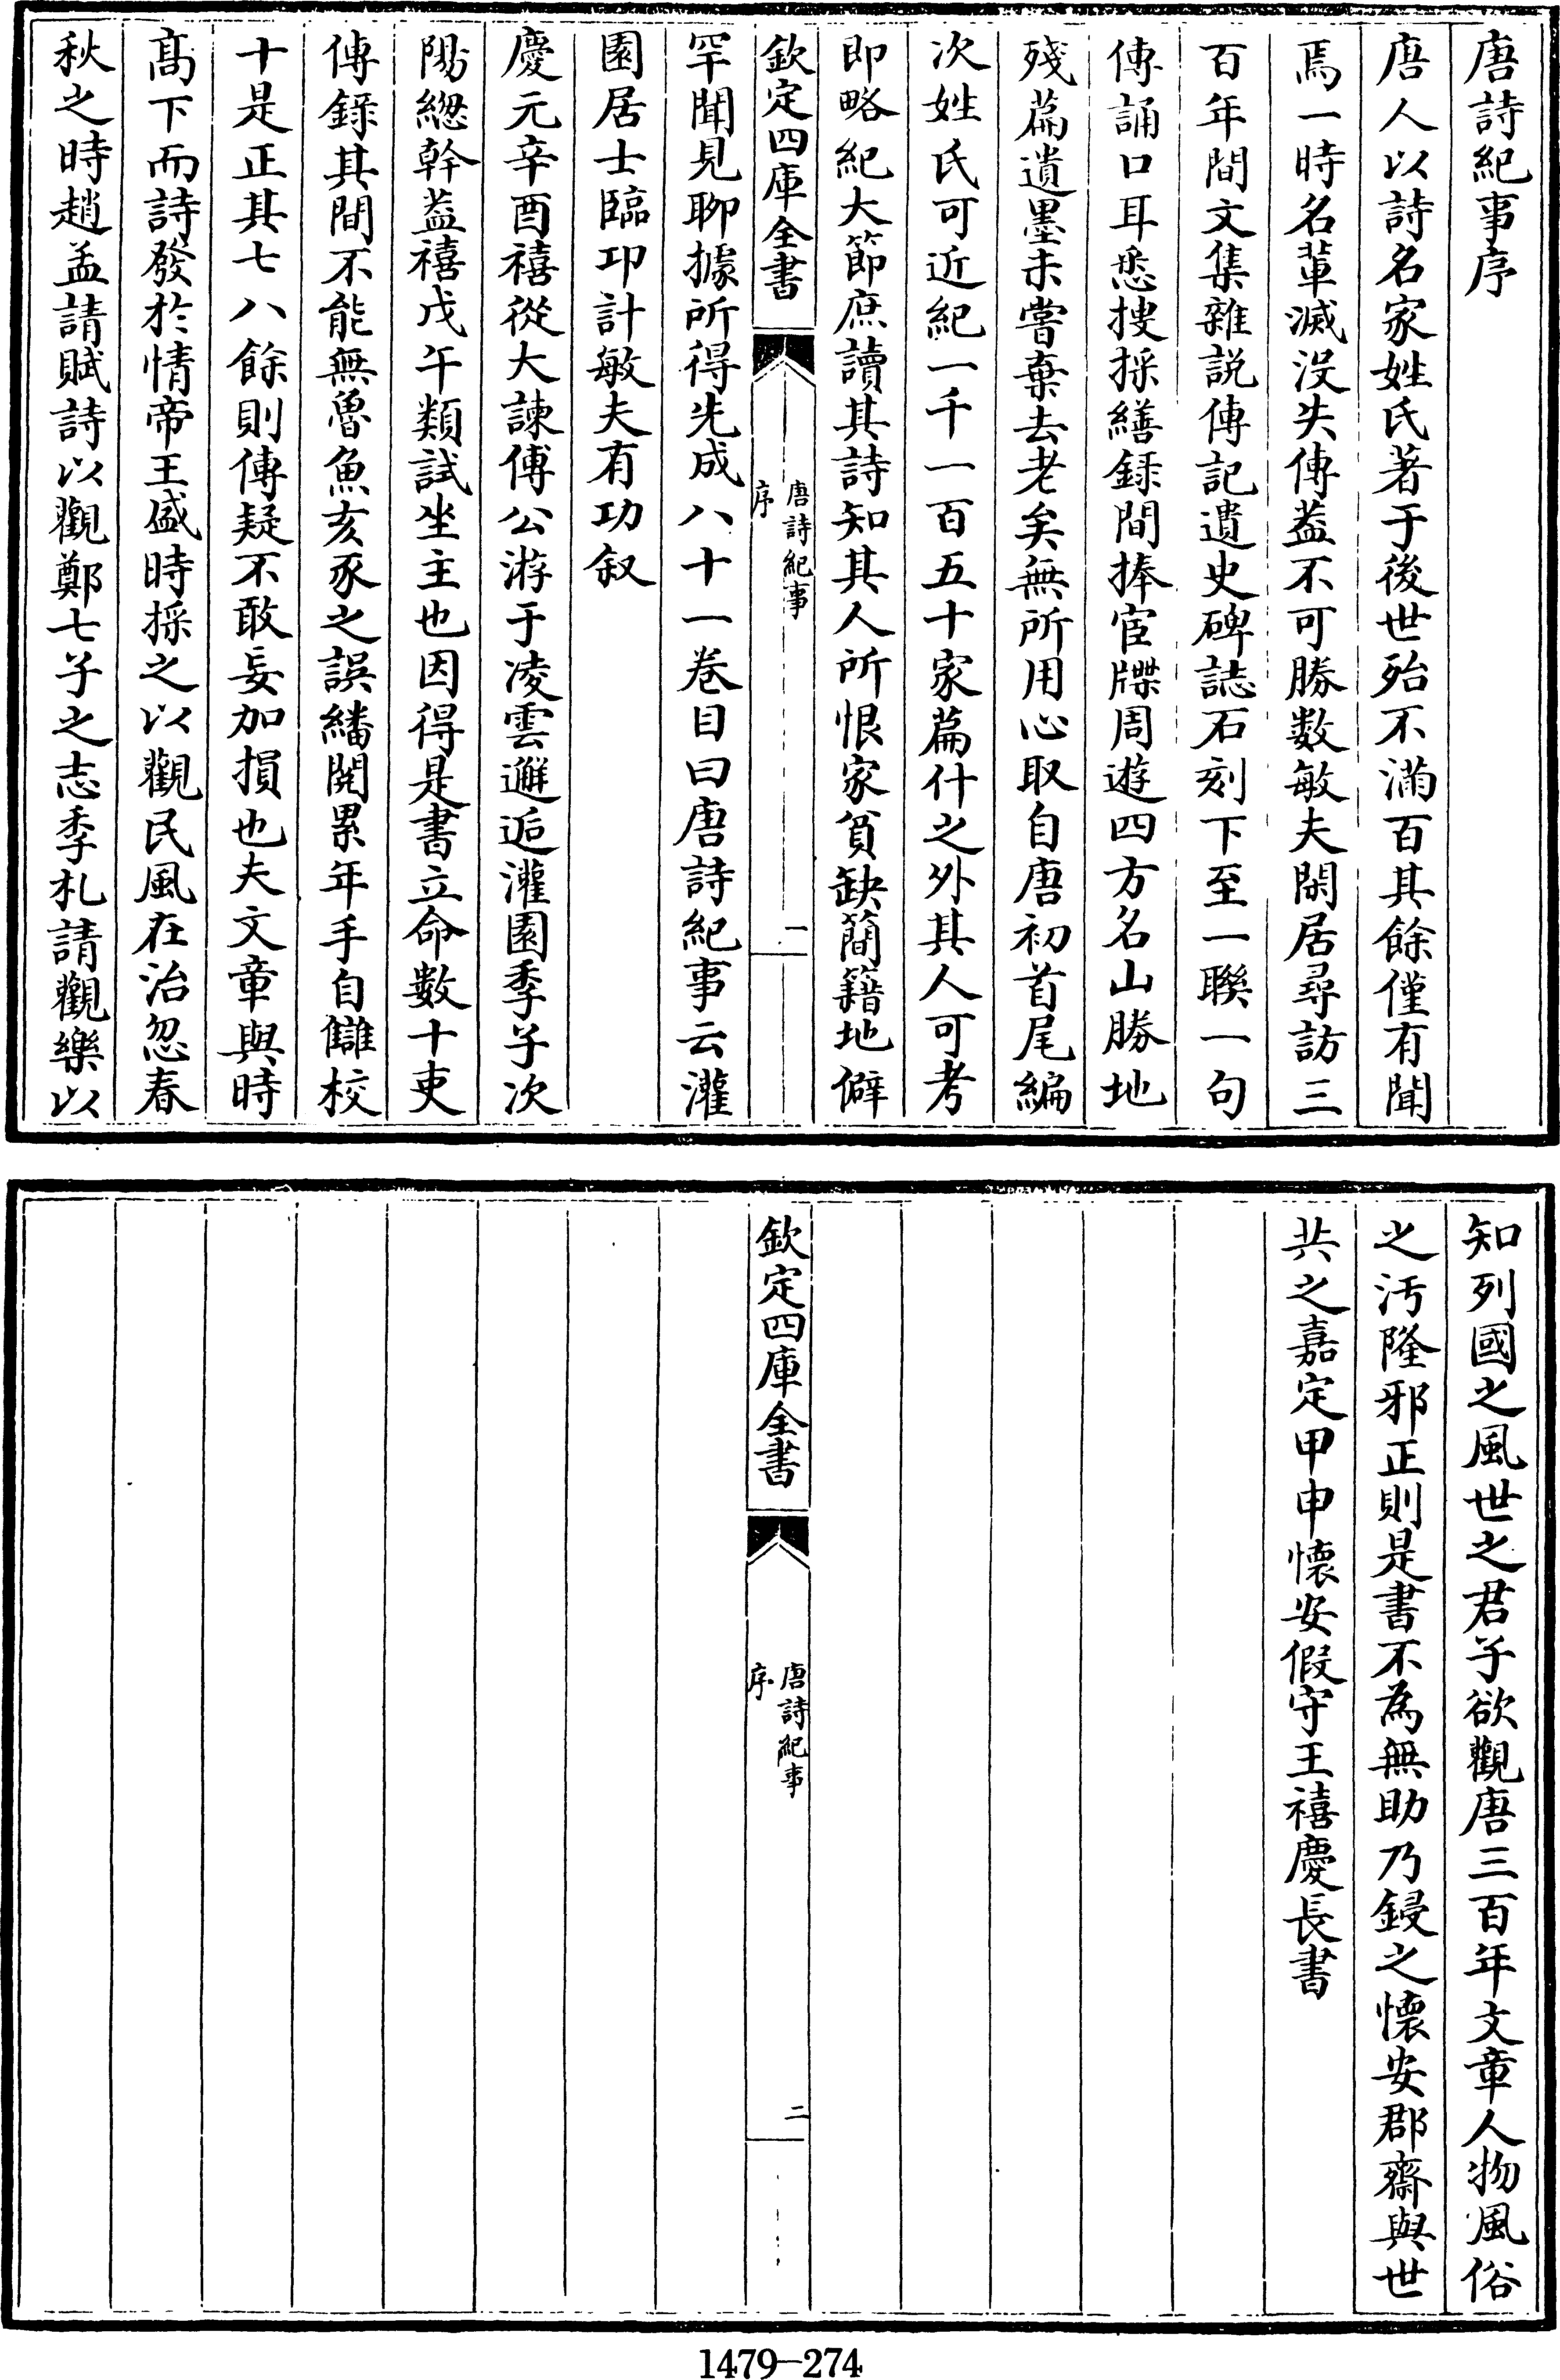 唐詩紀事序
唐人以詩名家姓氏著于後世殆不滿百其餘僅有聞
焉一時名軰滅没失傳葢不可勝數敏夫閒居尋訪三
百年間文集雜説傳記遺史碑誌石刻下至一聨一句
傳誦口耳悉捜採繕録間捧宦牒周遊四方名山勝地
殘篇遺墨未嘗棄去老矣無所用心取自唐初首尾編
次姓氏可近紀一千一百五十家篇什之外其人可考
即略紀大節庶讀其詩知其人所恨家貧缺簡籍地僻
欽定四庫全書
唐詩紀事
序
一
罕聞見聊據所得先成八十一卷目曰唐詩紀事云灌
園居士臨卭計敏夫有功叙
慶元辛酉禧從大諫傅公游于凌雲邂逅灌園季子次
陽緫幹葢禧戊午類試坐主也因得是書立命數十吏
傳録其間不能無魯魚亥豕之誤繙閲累年手自讎校
十是正其七八餘則傳疑不敢妄加損也夫文章與時
髙下而詩發於情帝王盛時採之以觀民風在治忽春
秋之時趙孟請賦詩以觀鄭七子之志季札請觀樂以
知列國之風世之君子欲觀唐三百年文章人物風俗
之汚隆邪正則是書不為無助乃鋟之懷安郡齋與世
共之嘉定甲申懷安假守王禧慶長書
欽定四庫全書
唐詩紀事
序
二
1479—274